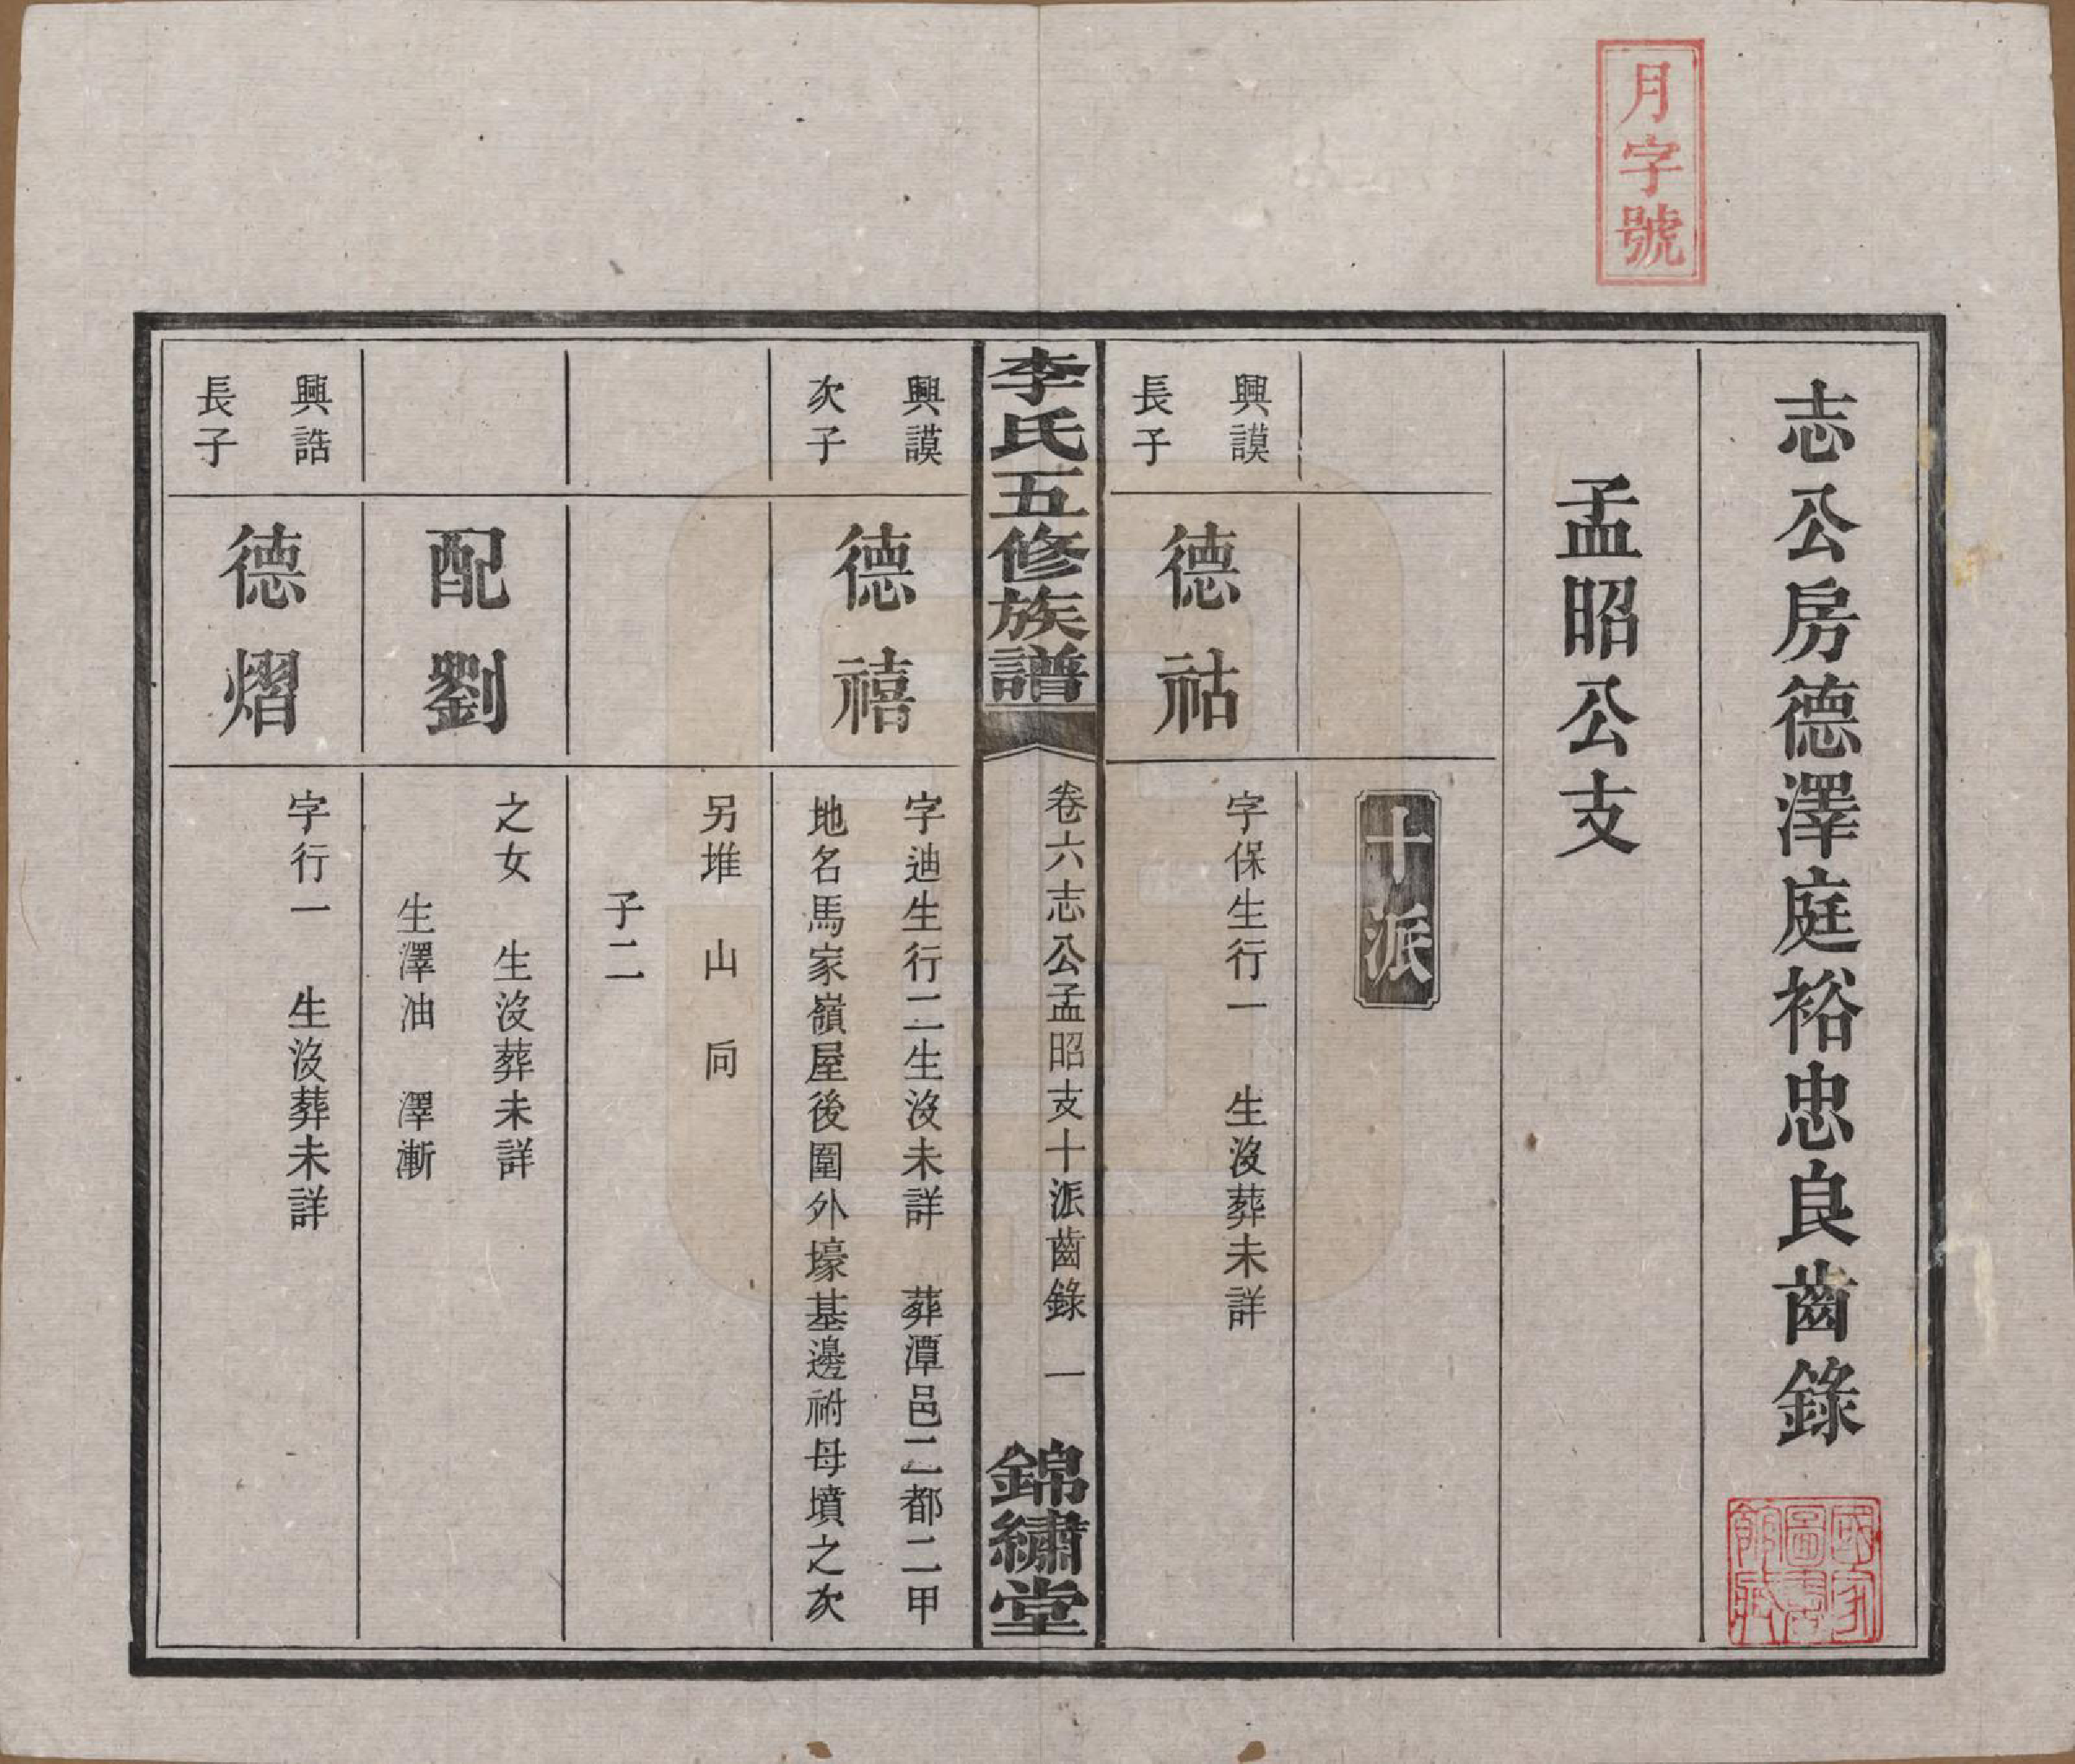 月字號
志公房德澤庭裕忠良齒錄
國家
圖書
館藏
孟昭公支
十派
興謨
長子
德祜
字保生行一　生沒葬未詳
李氏五修族譜
卷六志公孟昭支十派齒錄　一
錦繡堂
興謨
次子
德禧
字迪生行二生沒未詳　葬潭邑二都二甲
地名馬家嶺屋後圍外壕基邊祔母墳之次
另堆　山　向
子二
配劉
之女　生沒葬未詳
生澤油　澤漸
興誥
長子
德熠
字行一　生沒葬未詳